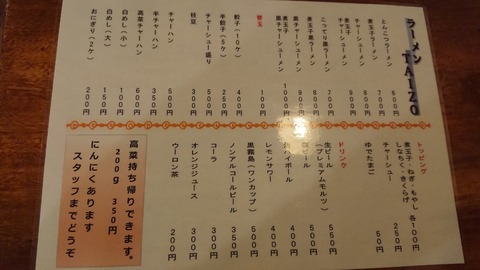 ラーメン TAIZO
とんこつラーメン 600円
煮玉子ラーメン 700円
チャーシューメン 800円
煮玉子チャーシューメン 900円
こってり黒ラーメン 700円
煮玉子黒ラーメン 800円
黒チャーシューメン 900円
煮玉子黒チャーシューメン 1000円
替玉 100円
餃子(10ケ) 400円
半餃子(5ケ) 200円
チャーシュー盛り 500円
枝豆 300円
チャーハン 500円
半チャーハン 350円
高菜チャーハン 600円
白めし(小) 100円
白めし(大) 150円
おにぎり(2ケ) 200円
トッピング
煮玉子・ねぎ・もやし 各100円
しなちく・きくらげ
チャーシュー 250円
ゆでたまご 50円
ドリンク
生ビール 550円
(プレミアムモルツ)
ビール 500円
ハイボール 400円
レモンサワー 400円
黒霧島(ワンカップ) 500円
ノンアルコールビール 350円
コーラ 300円
オレンジジュース 300円
ウーロン茶 200円
高菜持ち帰りできます。
200g 350円
にんにくあります
スタッフまでどうぞ